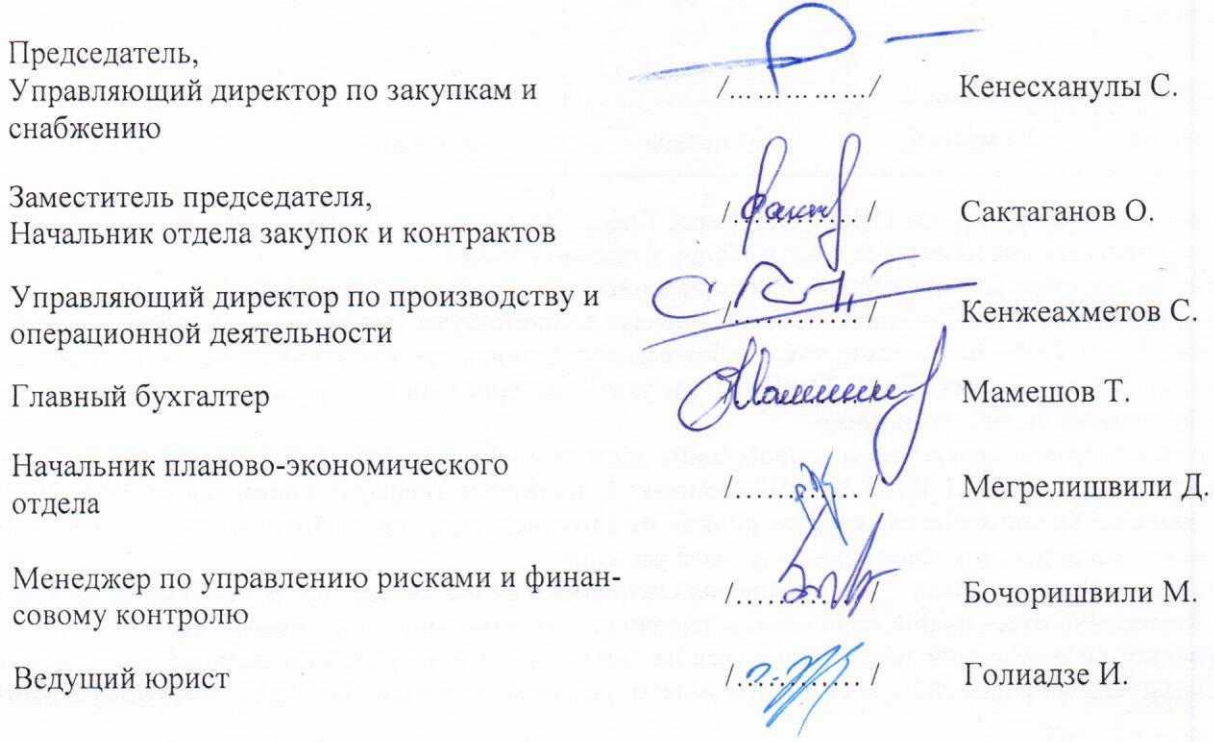 Председатель,
Управляющий директор по закупкам и
снабжению
/................/ Кенесханулы С.
Заместитель председателя,
Начальник отдела закупок и контрактов
/................/ Сактаганов О.
Управляющий директор по производству и
операционной деятельности
/................/ Кенжеахметов С.
Главный бухгалтер
/................/ Мамешов Т.
Начальник планово-экономического
отдела
/................/ Мегрелишвили Д.
Менеджер по управлению рисками и финан-
совому контролю
/................/ Бочоришвили М.
Ведущий юрист
/................/ Голиадзе И.